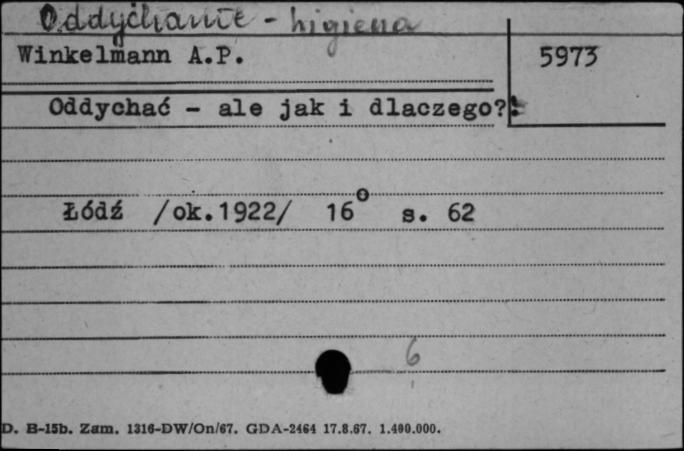 Oddychanie - higiena
Winkelmann A.P.
5973
Oddychać - ale jak i dlaczego?
Łódź /ok.1922/ 16° s. 62
6
D. B-15b. Zam. 1316-DW/On/67. GDA-2464 17.8.67. 1.400.000.